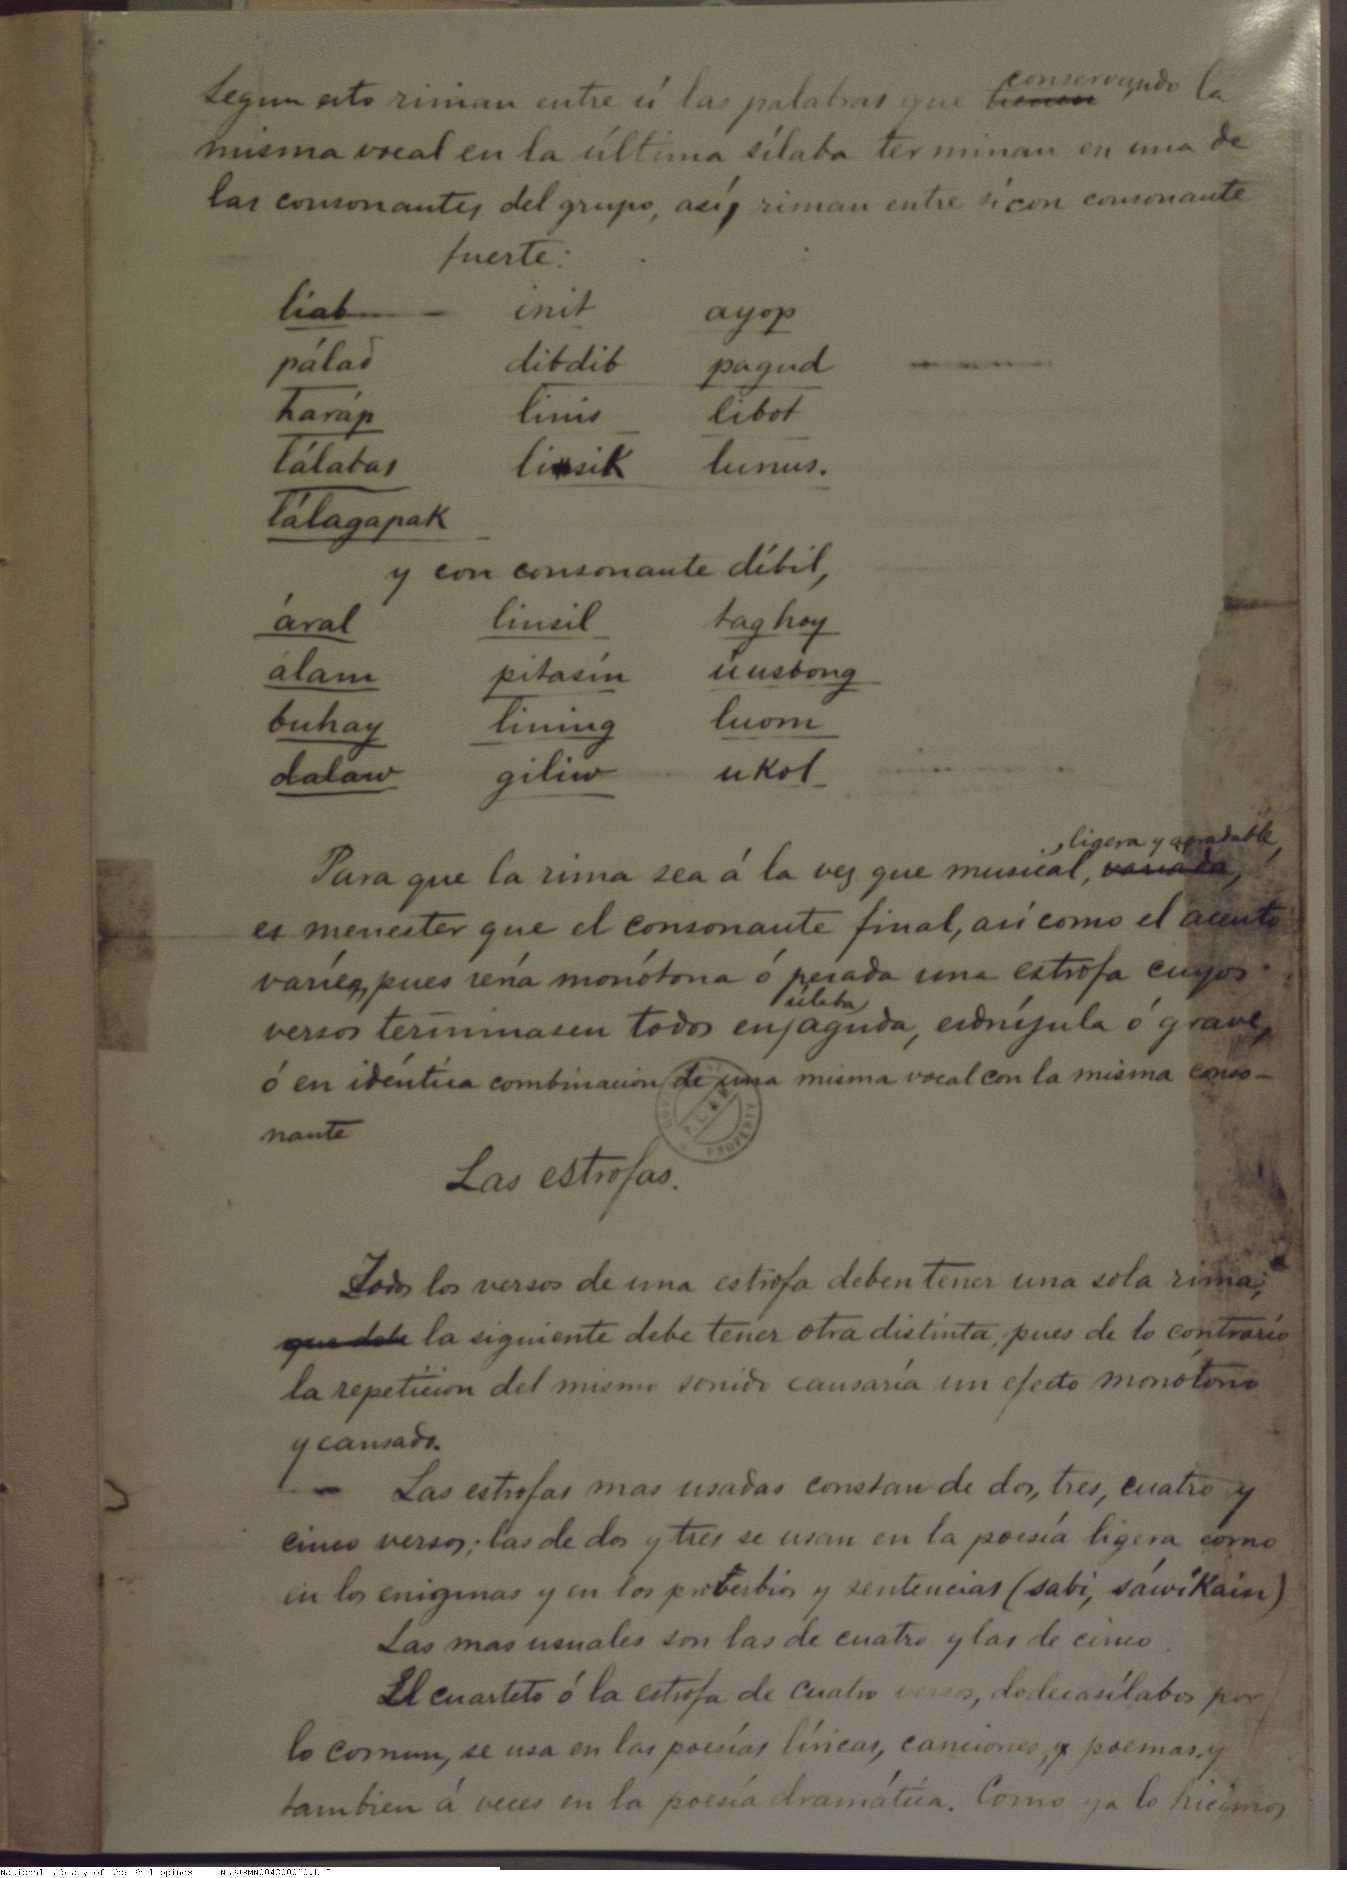 Segun esto riman entre sí las palabras que tienen conservando la
misma vocal en la última sílaba terminan en una de
las consonantes del grupo, así, riman entre sí con consonante
fuerte:
liab init ayop
pálad dibdib pagud
haráp linis libot
tálabas linsik lunus.
tálagapak
y con consonante débil,
áral linsil taghoy
álam pitasin úusbong
buhay lining luom
dalaw giliw ukol
Para que la rima sea á la vez que musical, variada, ligera y agradable,
es menester que el consonante final, así como el acento
varíen, pues sería monótona ó pesada una estrofa cuyos
versos terminasen todos en sílaba aguda, esdrújula ó grave,
ó en idéntica combinacion de una misma vocal con la misma conso-
nante
Las estrofas.
Todos los versos de una estrofa deben tener una sola rima;
que debe la siguiente debe tener otra distinta, pues de lo contrario
la repeticion del mismo sonido causaría un efecto monótono
y cansado.
— Las estrofas mas usadas constan de dos, tres, cuatro y
cinco versos; las de dos y tres se usan en la poesía ligera como
en los enigmas y en los proverbios y sentencias (sabi, sáwikain)
Las mas usuales son las de cuatro y las de cinco.
El cuarteto ó la estrofa de cuatro versos, dodecasílabos por
lo comun, se usa en las poesías líricas, canciones, y poemas, y
tambien á veces en la poesía dramática. Como ya lo hicimos